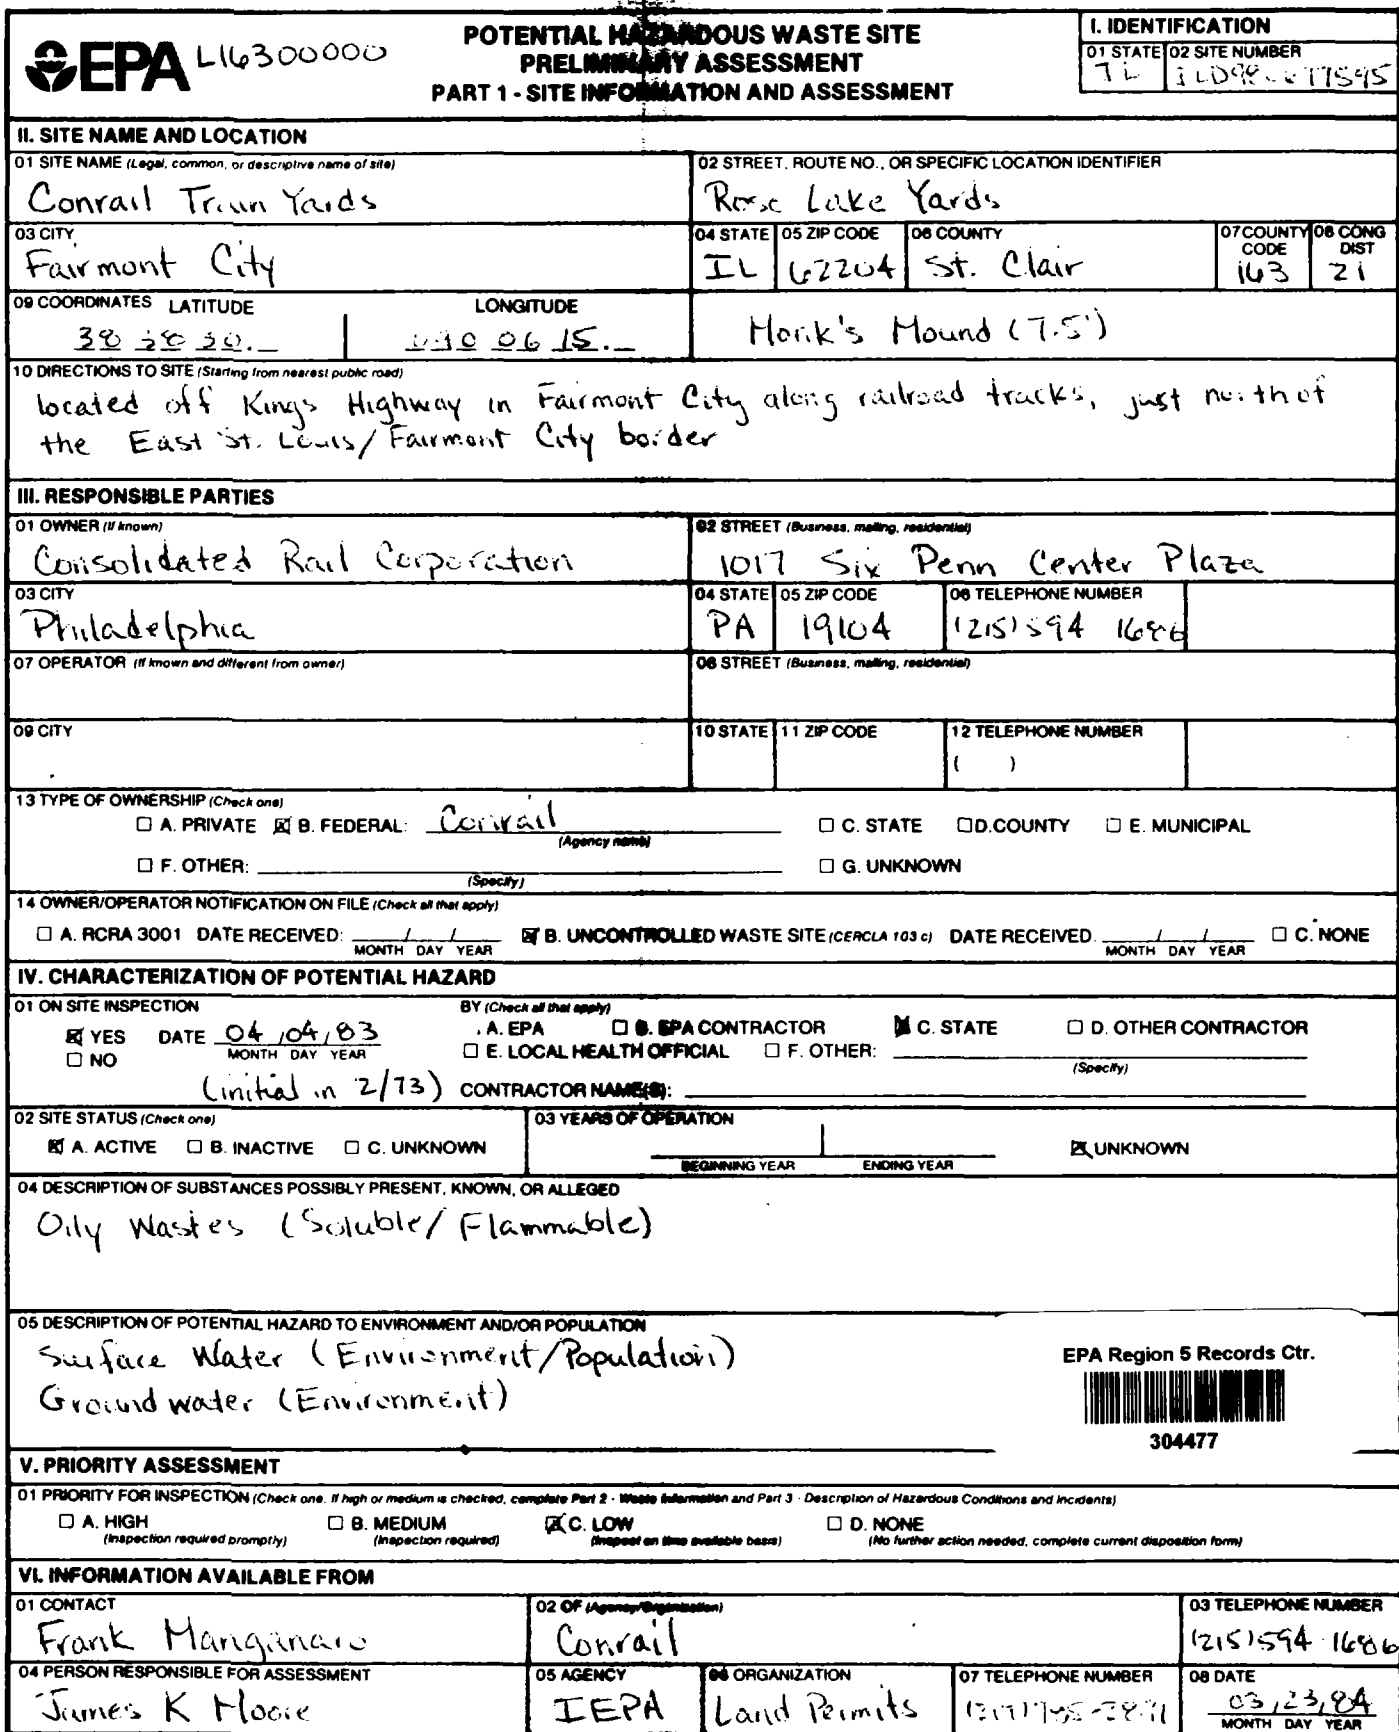 EPA L16300000
POTENTIAL HAZARDOUS WASTE SITE
PRELIMINARY ASSESSMENT
PART 1 - SITE INFORMATION AND ASSESSMENT
I. IDENTIFICATION
01 STATE 02 SITE NUMBER
IL
II. SITE NAME AND LOCATION
01 SITE NAME (Legal, common, or descriptive name of site)
Conrail Train Yards
02 STREET, ROUTE NO., OR SPECIFIC LOCATION IDENTIFIER
Rose Lake Yards
03 CITY
Fairmont City
04 STATE
IL
05 ZIP CODE
62204
06 COUNTY
St. Clair
07 COUNTY CODE
163
08 CONG DIST
21
09 COORDINATES LATITUDE LONGITUDE
38 38 30._ 090 06 15._
Monk's Mound (7.5')
10 DIRECTIONS TO SITE (Starting from nearest public road)
located off Kings Highway in Fairmont City along railroad tracks, just north of
the East St. Louis/Fairmont City border
III. RESPONSIBLE PARTIES
01 OWNER (if known)
Consolidated Rail Corporation
02 STREET (Business, mailing, residential)
1017 Six Penn Center Plaza
03 CITY
Philadelphia
04 STATE
PA
05 ZIP CODE
19104
06 TELEPHONE NUMBER
(215) 594 1686
07 OPERATOR (If known and different from owner)
08 STREET (Business, mailing, residential)
09 CITY
10 STATE
11 ZIP CODE
12 TELEPHONE NUMBER
( )
13 TYPE OF OWNERSHIP (Check one)
☐ A. PRIVATE ☒ B. FEDERAL: Conrail (Agency name) ☐ C. STATE ☐ D. COUNTY ☐ E. MUNICIPAL
☐ F. OTHER: (Specify) ☐ G. UNKNOWN
14 OWNER/OPERATOR NOTIFICATION ON FILE (Check all that apply)
☐ A. RCRA 3001 DATE RECEIVED: / / MONTH DAY YEAR ☒ B. UNCONTROLLED WASTE SITE (CERCLA 103 c) DATE RECEIVED: / / MONTH DAY YEAR ☐ C. NONE
IV. CHARACTERIZATION OF POTENTIAL HAZARD
01 ON SITE INSPECTION
☒ YES DATE 04/04/83
☐ NO MONTH DAY YEAR
(initial in 2/73)
BY (Check all that apply)
A. EPA ☐ B. EPA CONTRACTOR ☒ C. STATE ☐ D. OTHER CONTRACTOR
☐ E. LOCAL HEALTH OFFICIAL ☐ F. OTHER: (Specify)
CONTRACTOR NAME(S):
02 SITE STATUS (Check one)
☒ A. ACTIVE ☐ B. INACTIVE ☐ C. UNKNOWN
03 YEARS OF OPERATION
BEGINNING YEAR ENDING YEAR ☒ UNKNOWN
04 DESCRIPTION OF SUBSTANCES POSSIBLY PRESENT, KNOWN, OR ALLEGED
Oily Wastes (Soluble/Flammable)
05 DESCRIPTION OF POTENTIAL HAZARD TO ENVIRONMENT AND/OR POPULATION
Surface Water (Environment/Population)
Groundwater (Environment)
EPA Region 5 Records Ctr.
304477
V. PRIORITY ASSESSMENT
01 PRIORITY FOR INSPECTION (Check one. If high or medium is checked, complete Part 2 - Waste Information and Part 3 - Description of Hazardous Conditions and Incidents)
☐ A. HIGH ☐ B. MEDIUM ☒ C. LOW ☐ D. NONE
(Inspection required promptly) (Inspection required) (Inspect on time available basis) (No further action needed, complete current disposition form)
VI. INFORMATION AVAILABLE FROM
01 CONTACT
Frank Manganaro
02 OF (Agency/Organization)
Conrail
03 TELEPHONE NUMBER
(215) 594-1686
04 PERSON RESPONSIBLE FOR ASSESSMENT
James K Moore
05 AGENCY
IEPA
06 ORGANIZATION
Land Permits
07 TELEPHONE NUMBER
08 DATE
03/23/84
MONTH DAY YEAR